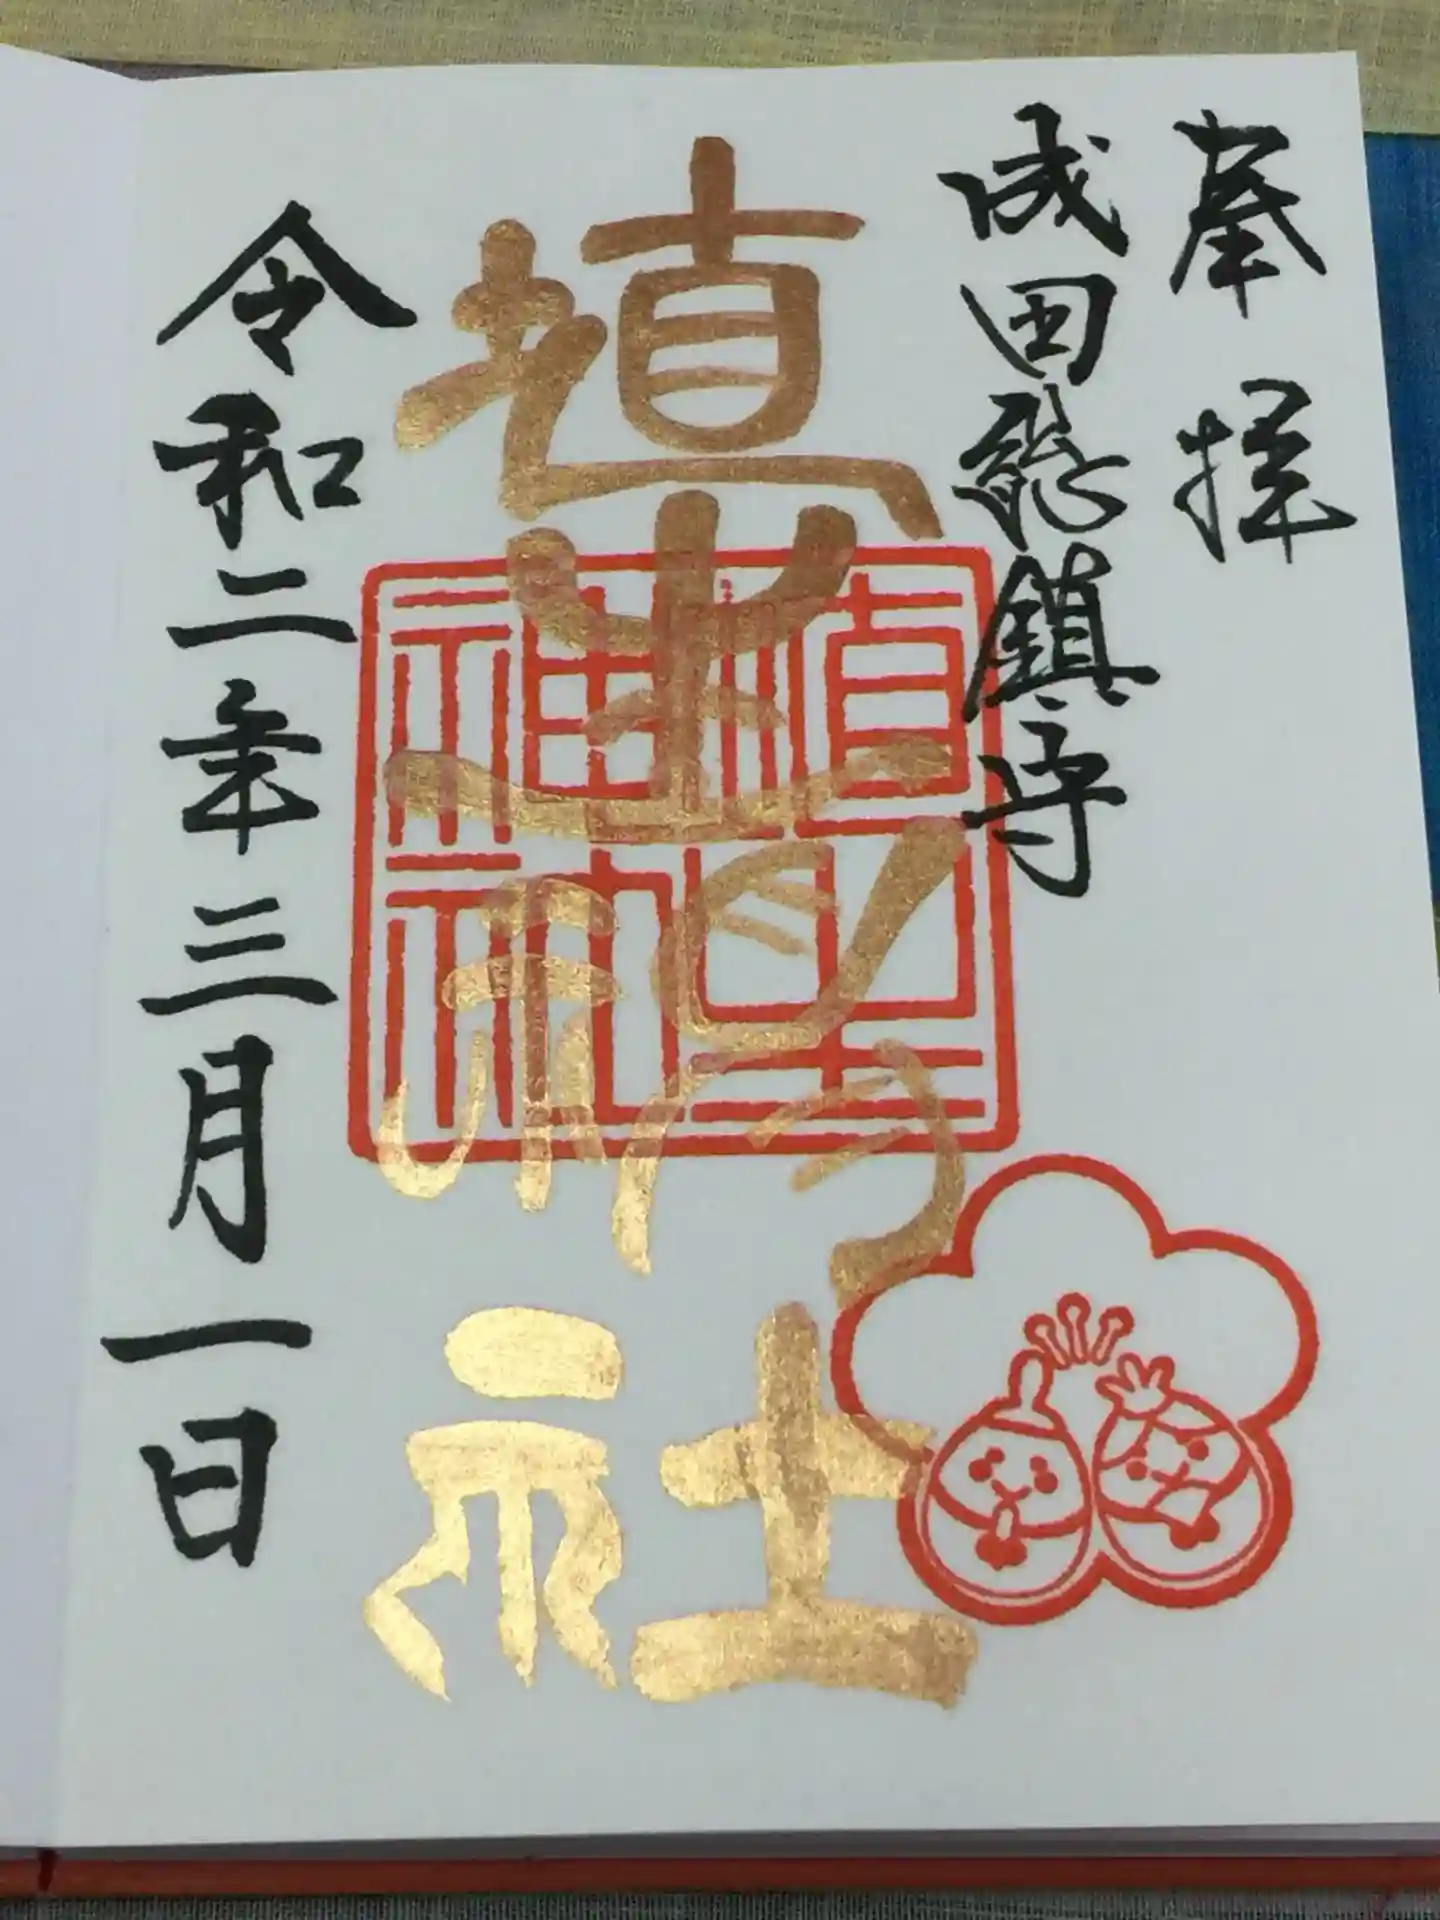 奉拝
成田總鎮守
埴生神社
埴生神社
令和二年三月一日